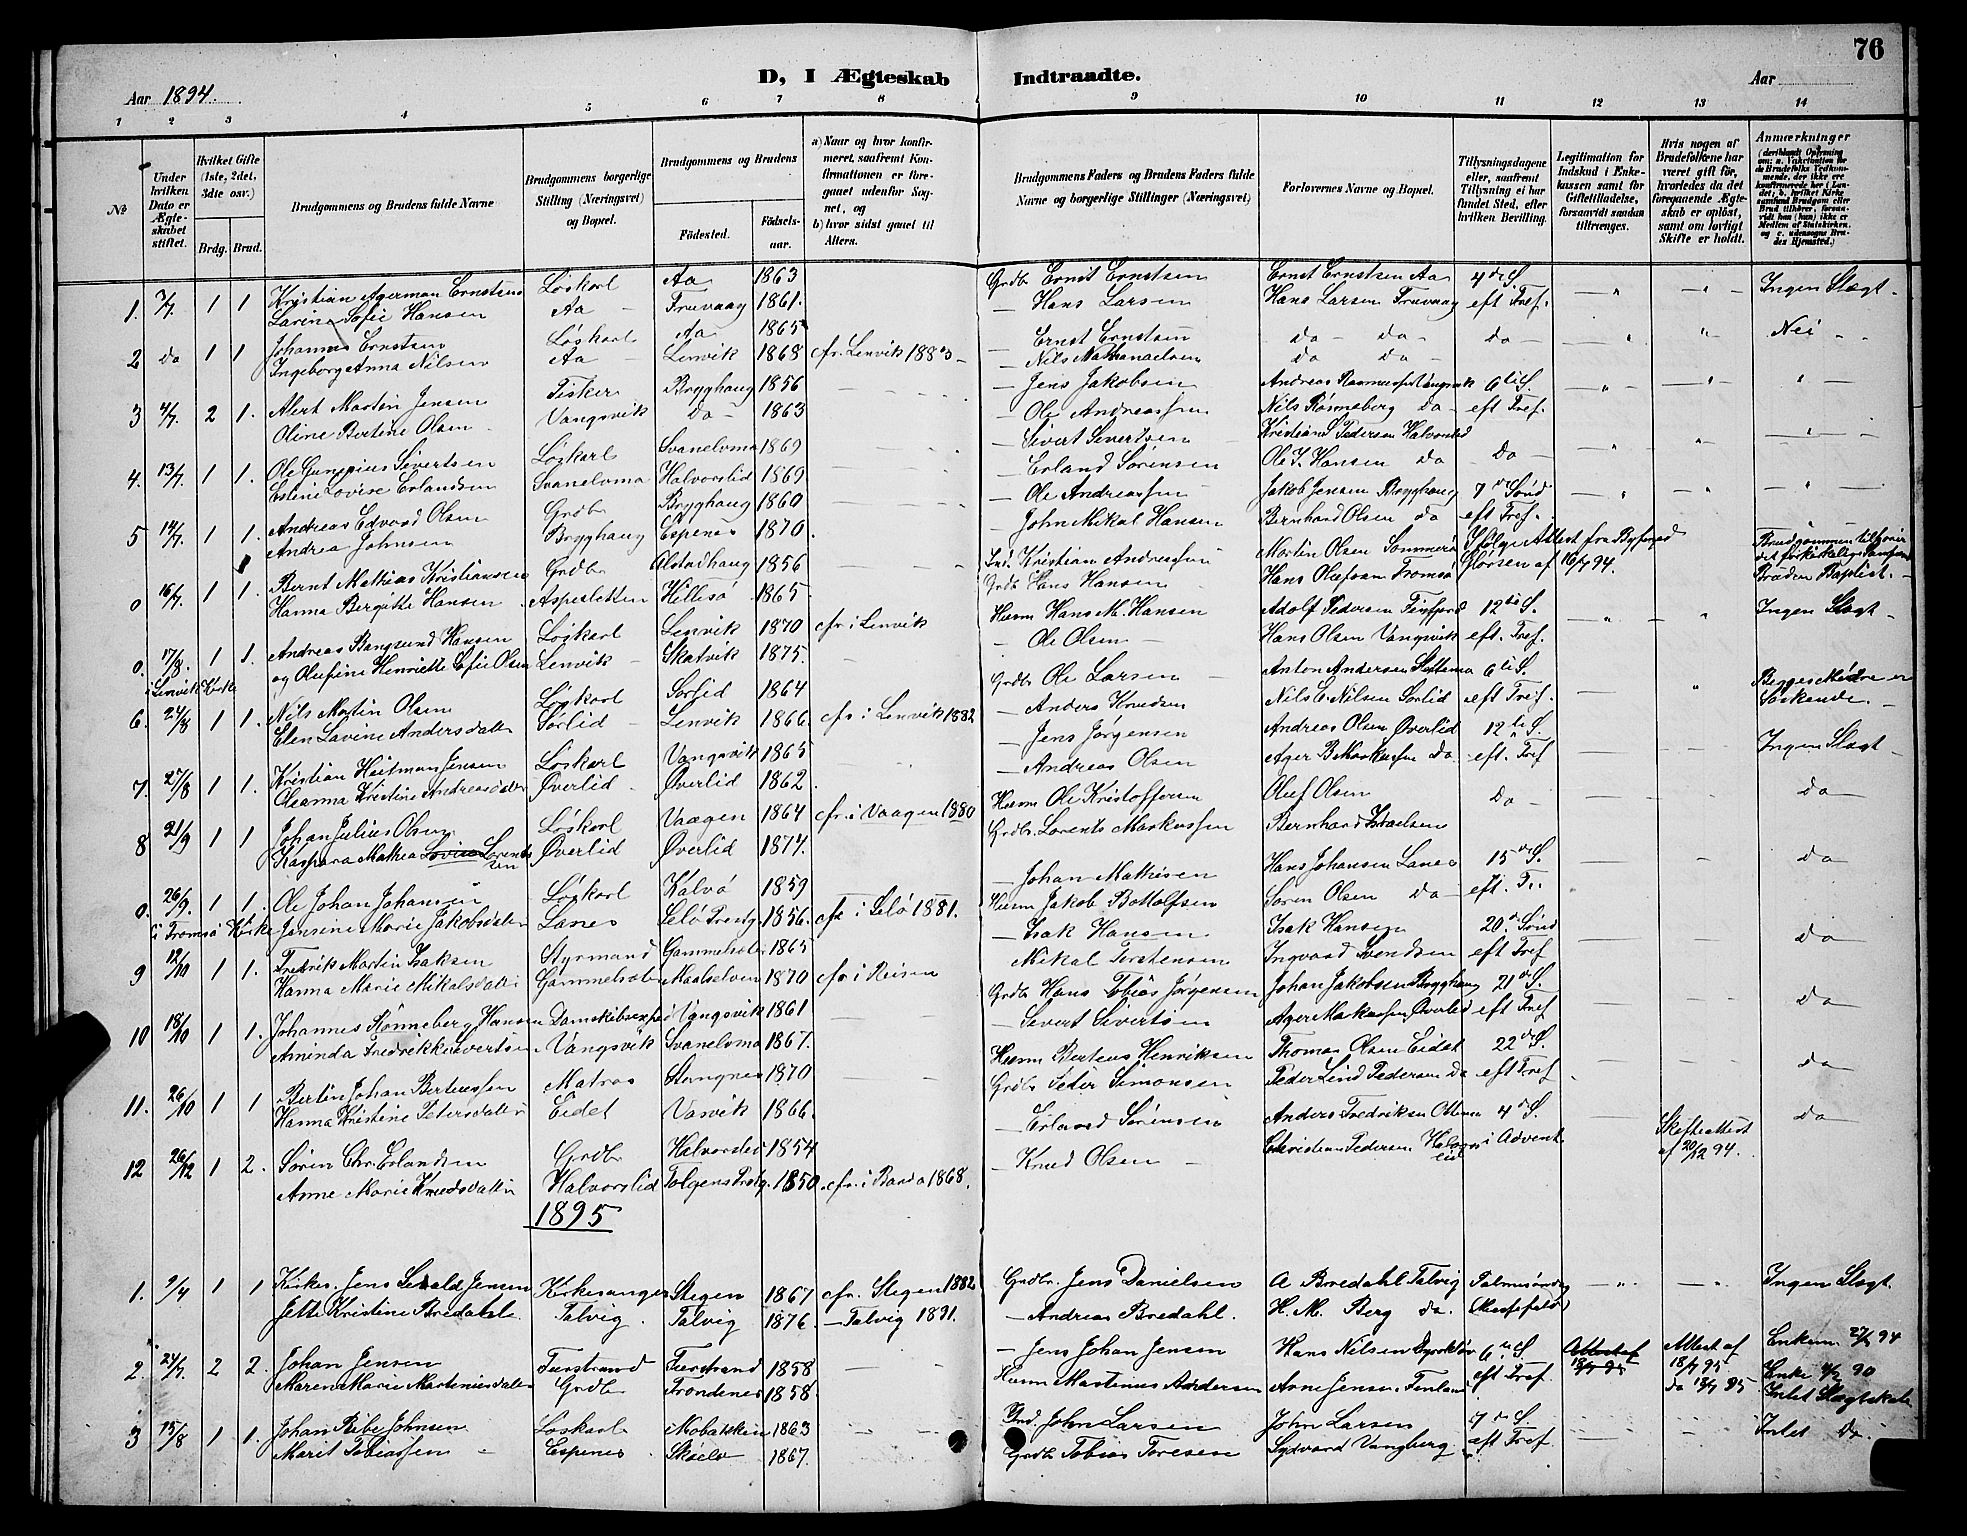 76
D, I Ægteskab Indtraadte.
Aar 1894. Aar
1 2 3 4 5 6 7 8 9 10 11 12 13 14
№
Under hvilken Dato er Ægteskabet stiftet.
Hvilket Gifte (1ste, 2det, 3die osv.)
Brdg. Brud.
Brudgommens og Brudens fulde Navne
Brudgommens borgerlige Stilling (Næringsvei) og Bopæl.
Brudgommens og Brudens
Fødested. Fødselsaar.
a) Naar og hvor konfirmeret, saafremt Konfirmationen er foregaaet udenfor Sognet, og
b) hvor sidst gaaet til Alters.
Brudgommens Faders og Brudens Faders fulde Navne og borgerlige Stillinger (Næringsvei)
Forlovernes Navne og Bopæl.
Tillysningsdagene eller, saafremt Tillysning ei har fundet Sted, efter hvilken Bevilling.
Legitimation for Indskud i Enkekassen samt for Giftetilladelse, forsaavidt saadan tiltrænges.
Hvis nogen af Brudefolkene har været gift før, hvorledes da det foregaaende Ægteskab er opløst, samt om lovligt Skifte er holdt.
Anmærkninger
1. 7/7 1 1 Kristian Agerman Ernstsen Løskarl Aa 1863 Grdb Ernst Ernstsen Ernst Ernstsen Aa 4de S. Ingen Slægt
Larine Sofie Hansen Aa Truvaag 1861. Hans Larsen Hans Larsen Truvaag eft Tref.
2 do 1 1 Johannes Ernstsen Løskarl Aa 1865 Ernst Ernstsen do do do Nei
Ingeborg Anna Nilsen Aa Lenvik 1868 cfr. Lenvik 1883 Nils Nathanaelsen do do
3 2 1. Alert Martin Jensen Fisker Brygghaug 1856 Jens Jakobsen Andreas Rasmussen Vangsvik 6te S.
Oline Bertine Olsen Vangsvik do 1863 Ole Andreassen Nils Rønneberg do eft Tref.
4. 13/7 1 1. Ole Gunerius Sivertsen Løskarl Svanelvmo 1869 Sivert Sivertsen Kristian Pedersen Halvorslid do
Estine Lovise Erlandsen Svanelvmo Halvorslid 1869 Erland Sørensen Ole J. Hansen do
5 14/7 1 1. Andreas Edvard Olsen Grdb Brygghaug 1860 Ole Andreassen Jakob Jensen Brygghaug 7de Sønd
Andrea Johnsen Brygghaug Espenes 1870 John Mikal Hansen Bernhard Olsen do eft Tref.
0 16/7 1 1 Bernt Mathias Kristiansen Grdb Alstadhaug 1856 Ind. Kristian Andreassen Martin Olsen Sommerø Ifølge Attest fra Byfoged Brudgommen tilhører det frikirkelige Samfund
Hanna Bergitte Hansen Aspesletten Hillesø 1865 Grdb Hans Hansen Hans Olufsen Tromsø Gløersen af 16/7 94. Bruden Baptist.
0. 17/8. 1 1. Andreas Bangsund Hansen Løskarl Lenvik 1870 cfr i Lenvik Husm Hans M. Hansen Adolf Pedersen Finfjord 12te S. Ingen Slægt
og Olufine Henriette Sofie Olsen Lenvik Skatvik 1875. Ole Olsen Hans Olsen Vangsvik eft. Tref.
i Lenvik Kirke
6. 24/8 1 1. Nils Martin Olsen Løskarl Sørlid 1864 Grdb Ole Larsen Anton Andersen 6te S. Begges Mødre er
Elen Lavine Andersdatter Sørlid Lenvik 1866 cfr i Lenvik 1882 Anders Knudsen Nils E. Nilsen Sørlid eft Tref. Søskende.
7. 27/8 1 1. Kristian Heitman Jensen Løskarl Vangsvik 1865 Jens Jørgensen Andreas Olsen Øverlid 12te S. Ingen Slægt
Oleanna Kristine Andreasdatter Øverlid Øverlid 1862 Andreas Olsen Ager B. Markussen do eft. Tref
8 21/9 1 1 Johan Julius Olsen Løskarl Vaagen 1864 cfr. i Vaagen 1880 Husm Ole Kristoffersen Oluf Olsen do do
Kaspara Mathea Lovise Lorentssen Øverlid Øverlid 1874. Grdb. Lorents Markussen Bernhard Israelsen
0. 26/9. 1 1. Ole Johan Johansen Løskarl Kalvø 1859 Johan Mathisen Hans Johansen Lanes 15de S. do
i Tromsø Kirke Jensine Marie Jakobsdatter Lanes Selø Prestg. 1856. cfr i Selø 1881. Husm Jakob Bottolfsen Søren Olsen do eft. Tr.
9 12/10 1 1. Fredrik Martin Isaksen Styrmand Gammelsæter 1865 Isak Hansen Isak Hansen 20de Sønd do
Hanna Marie Mikalsdatter Gammelsæter Maalselven 1870 cfr i Reisen Mikal Torstensen Ingvard Svendsen eft Tref
10 18/10 1 1. Johannes Rønneberg Hansen Damskibsexped. Vangsvik 1861 Grdb Hans Tobias Jørgensen Johan Jakobsen Brygghaug 21de S. do
Aminda Fredrikke Sivertsen Vangsvik Svanelvmo 1867. Sivert Sivertsen Ager Markussen Øverlid eft Tref
11. 26/10 1 1 Bertin Johan Berteussen Matros Stangnes 1870 Husm Berteus Henriksen Thomas Olsen Eidet 22de S. do
Hanna Kristine Petersdatter Eidet Vasvik 1866. Grdb. Peter Simonsen Peder Lind Pedersen do eft Tref
12 26/12 1 2. Søren Chr. Erlandsen Grdb Halvorslid 1854 Erland Sørensen Anders Fredriksen 4de S. Skifteattest do
Anne Marie Knudsdatter Halvorslid Tolgens Prstg. 1850 cfr. i Bardo 1868. Knud Olsen Christian Pedersen Halvorslid i Advent af 20/12 94.
1895
1. 9/4 1 1 Kirkes. Jens Sevald Jensen Kirkesanger Stegen 1867 cfr. Stegen 1882 Grdbr. Jens Danielsen A Bredahl Talvig Palmesøndag Ingen Slægt.
Jette Kristine Bredahl Talvig Talvig 1876 Talvig 1891. Andreas Bredahl. H. M. Berg do.
2. 24/7. 2 2. Johan Jensen Tærstrand Tærstrand 1858 Jens Johan Jensen Hans Nilsen 6te S Attest af 18/7 95 Attest af 18/7 95 Enkem. 27/2 94
Maren Marie Martinusdatter Grdb Trondenes 1858 Husm Martinus Andersen Arne Jensen Finland eft Tref. do 18/7 95 Enke 90 Intet Slægtskab
3 15/8 1 1. Johan Ribe Johnsen Løskarl 1863 Ind. John Larsen John Larsen 7de S. Intet do.
Marit Tobiassen Espenes Skøelv 1867. Grdb Tobias Toresen Sydvard Vangberg eft Tref.